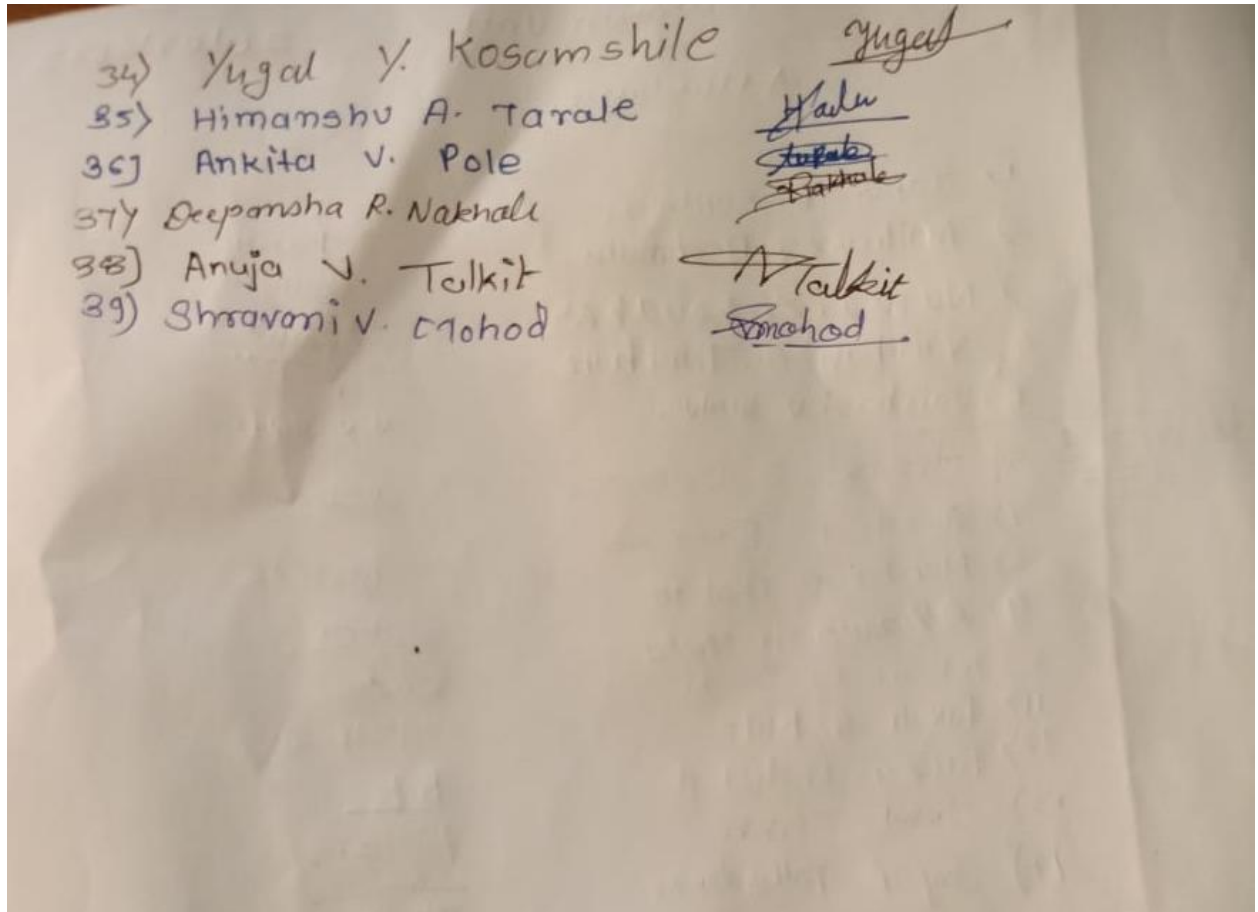 34) Yugal Y. Kosamshile Yugal
35) Himanshu A. Tarale
36] Ankita V. Pole
37) Deepansha R. Nakhale Nakhale
38) Anuja V. Talkit Talkit
39) Shravani V. Mohod Smohod